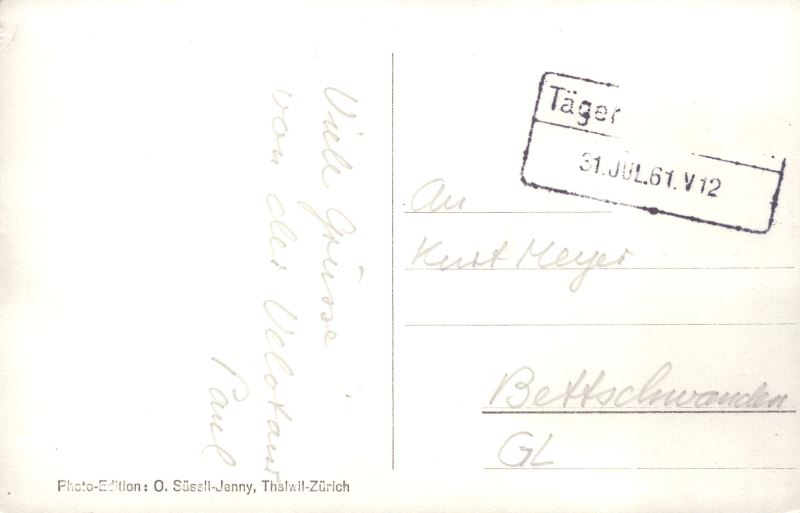 Viele Grüsse
von der Velotour
Paul
Täger
31.JUL.61.V12
An
Kurt Meyer
Bettschwanden
GL
Photo-Edition: O. Süssli-Jenny, Thalwil-Zürich